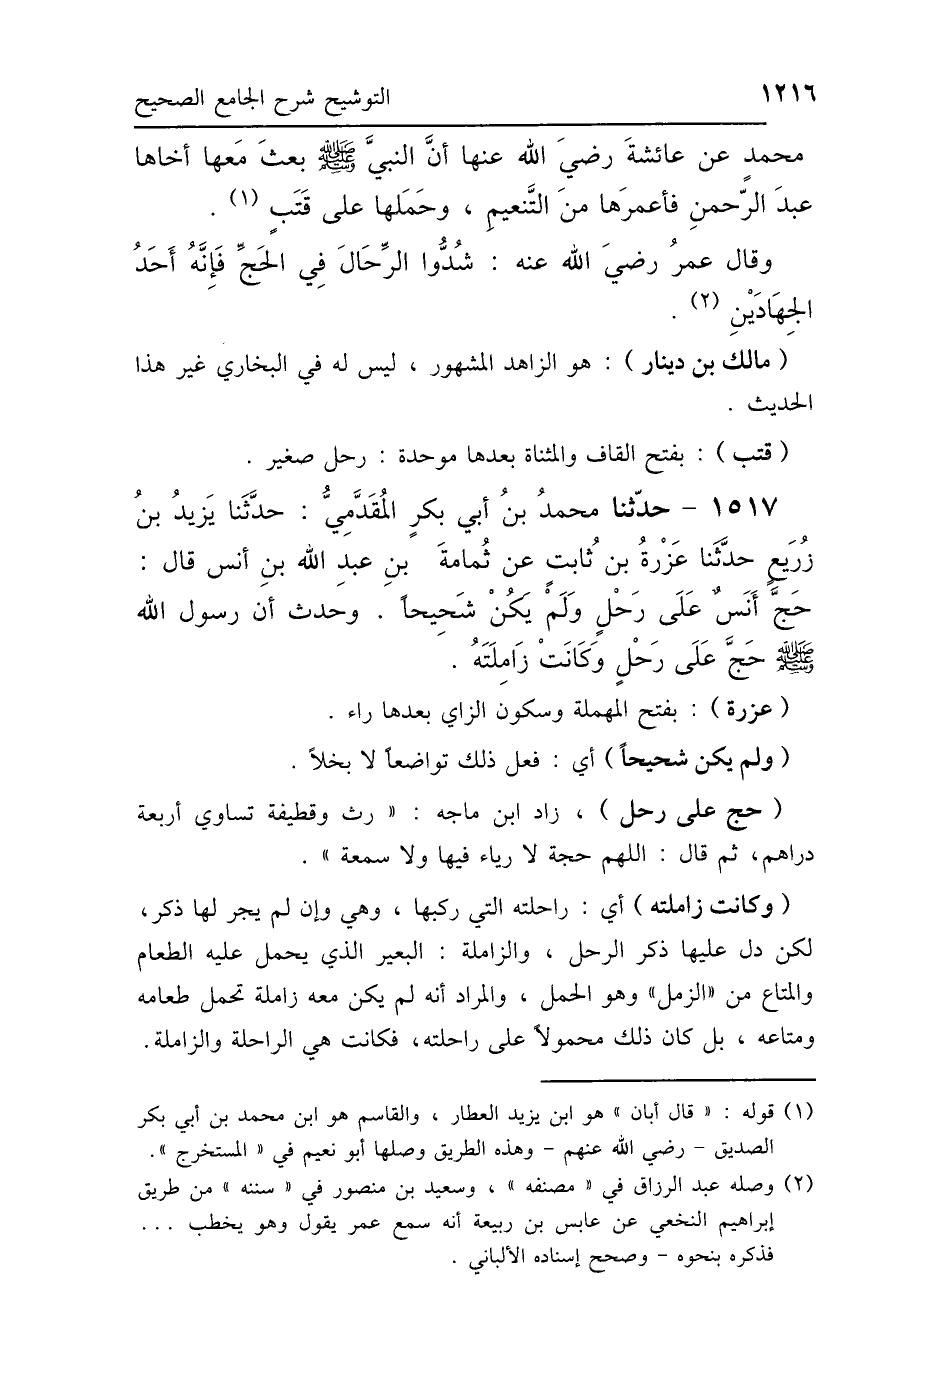 ١٢١٦ التوشيح شرح الجامع الصحيح
محمدٍ عن عائشةَ رضيَ الله عنها أنَّ النبيَّ ﷺ بعثَ مَعها أخاها
عبدَ الرّحمنِ فأعمرَها منَ التَّنعيمِ ، وحَمَلها على قَتَبٍ (١) .
وقال عمرُ رضيَ الله عنه : شُدُّوا الرِّحَالَ فِي الحَجِّ فَإِنَّهُ أَحَدُ
الجِهَادَيْنِ (٢) .
( مالك بن دينار ) : هو الزاهد المشهور ، ليس له في البخاري غير هذا
الحديث .
( قتب ) : بفتح القاف والمثناة بعدها موحدة : رحل صغير .
١٥١٧ – حدّثنا محمدُ بنُ أبي بكرٍ المُقَدَّمِيُّ : حدَّثَنا يَزيدُ بنُ
زُرَيَعٍ حدَّثَنا عَزْرةُ بن ثُابتٍ عن ثُمامةَ بنِ عبدِ الله بنِ أنس قال :
حَجَّ أَنَسٌ عَلَى رَحْلٍ وَلَمْ يَكُنْ شَحِيحاً . وحدث أن رسول الله
ﷺ حَجَّ عَلَى رَحْلٍ وَكَانَتْ زَامِلَتَهُ .
( عزرة ) : بفتح المهملة وسكون الزاي بعدها راء .
( ولم يكن شحيحاً ) أي : فعل ذلك تواضعاً لا بخلاً .
( حج على رحل ) ، زاد ابن ماجه : « رث وقطيفة تساوي أربعة
دراهم، ثم قال : اللهم حجة لا رياء فيها ولا سمعة » .
( وكانت زاملته ) أي : راحلته التي ركبها ، وهي وإن لم يجر لها ذكر،
لكن دل عليها ذكر الرحل ، والزاملة : البعير الذي يحمل عليه الطعام
والمتاع من «الزمل» وهو الحمل ، والمراد أنه لم يكن معه زاملة تحمل طعامه
ومتاعه ، بل كان ذلك محمولاً على راحلته، فكانت هي الراحلة والزاملة.
(١) قوله : « قال أبان » هو ابن يزيد العطار ، والقاسم هو ابن محمد بن أبي بكر
الصديق – رضي الله عنهم – وهذه الطريق وصلها أبو نعيم في « المستخرج ».
(٢) وصله عبد الرزاق في « مصنفه » ، وسعيد بن منصور في « سننه » من طريق
إبراهيم النخعي عن عابس بن ربيعة أنه سمع عمر يقول وهو يخطب ...
فذكره بنحوه – وصحح إسناده الألباني .